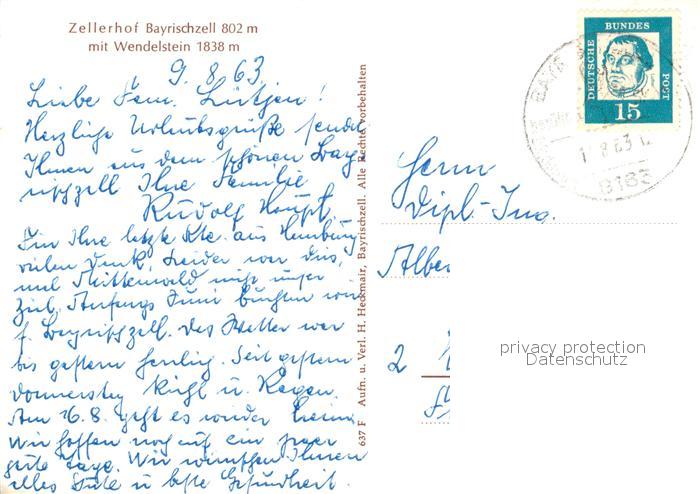 Zellerhof Bayrischzell 802 m
mit Wendelstein 1838 m
9.8.63.
Liebe Fam. Lütjen!
Herzliche Urlaubsgrüße sendet
Ihnen aus dem schönen Bay-
rischzell Ihre Familie
Rudolf Haupt.
Für Ihre letzte Kte. aus Hamburg
vielen Dank, leider war dies,
und Mittenwald nicht unser
Ziel. Anfangs Juni buchten wir
f. Bayrischzell. Das Wetter war
bis gestern herrlich. Seit gestern
Donnerstag kühl u. Regen.
Am 26.8. geht es wieder heim.
Wir hoffen noch auf ein paar
gute Tage. Wir wünschen Ihnen
alles Gute u. beste Gesundheit.
637 F Aufn. u. Verl. H. Heckmair, Bayrischzell. Alle Rechte vorbehalten
DEUTSCHE BUNDES POST
15
8.63
8163
Herrn
Dipl.-Ing.
Alber
2
privacy protection
Datenschutz